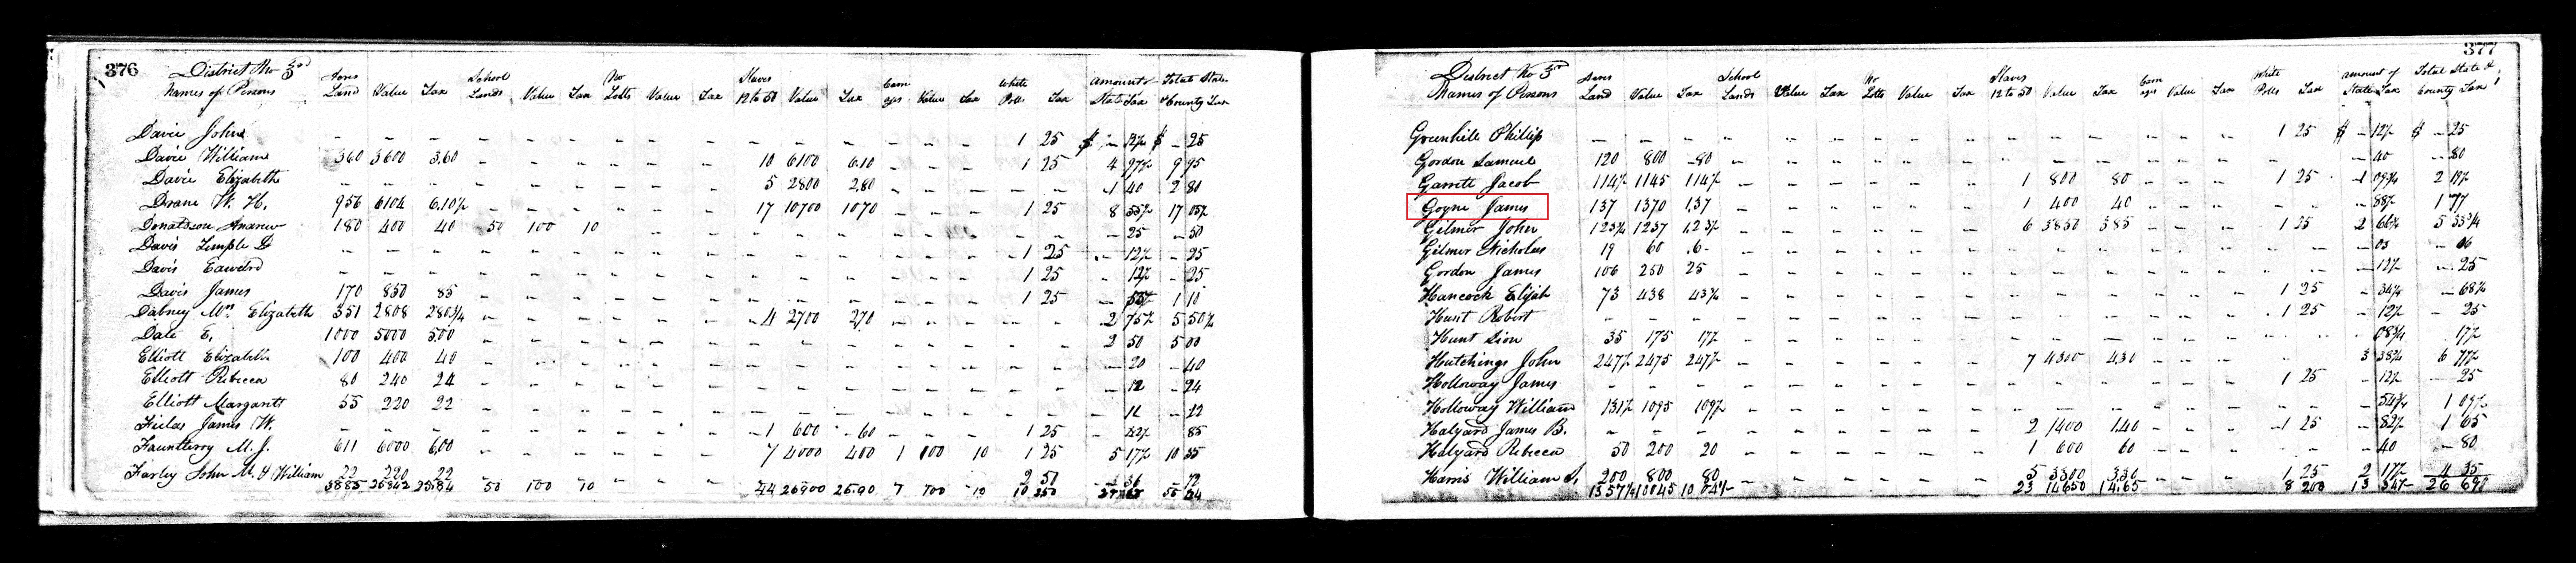 376 District No 3rd
Names of Persons Acres Land Value Tax School Lands Value Tax No Lotts Value Tax Slaves 12 to 50 Value Tax Value Tax White Polls Tax Amount of State Tax Total State & County Tax
Davie John - - - - - - - - - - - - - - - 1 25 $ - 12½ $ - 25
Davie William 360 3600 3.60 - - - - - - 10 6100 6.10 - - - 1 25 4 97½ 9 95
Davie Elizabeth - - - - - - - - - 5 2800 2.80 - - - - - 1 40 2 80
Drane W. H. 956 6104 6.10½ - - - - - - 17 10700 1070 - - - 1 25 8 17
Donaldson Andrew 180 400 40 50 100 10 - - - - - - - - - - - 25 - 50
Davis Temple - - - - - - - - - - - - - - - 1 25 - 12½ - 25
Davis Edward - - - - - - - - - - - - - - - 1 25 - 12½ - 25
Davis James 170 850 85 - - - - - - - - - - - - 1 25 - 55 1 10
Dabney Mrs Elizabeth 351 2808 280¾ - - - - - - 4 2700 270 - - - - - 2 75½ 5 50½
Dale E. 1000 5000 5.00 - - - - - - - - - - - - - - 2 50 5 00
Elliott Elizabeth 100 400 40 - - - - - - - - - - - - - - 20 - 40
Elliott Rebecca 80 240 24 - - - - - - - - - - - - - - 12 - 24
Elliott Margarett 55 220 22 - - - - - - - - - - - - - - 11 - 22
James W. - - - - - - - - - 1 600 60 - - - 1 25 - 42½ 85
Fauntleroy M. J. 611 6000 6.00 - - - - - - 7 4000 400 1 100 10 1 25 5 17½ 10 35
Farley John M. & William 22 220 22 - - - - - - - - - - - - 2 50 72
50 100 10 44 26900 26.90 10 250
377
District No 3rd
Names of Persons Acres Land Value Tax School Lands Value Tax No Lotts Value Tax Slaves 12 to 50 Value Tax Value Tax White Polls Tax Amount of State Tax Total State & County Tax
Greenhill Phillip - - - - - - - - - - - - - - - 1 25 $ - 12½ $ - 25
Gordon Samuel 120 800 80 - - - - - - - - - - - - - - 40 - 80
Garrett Jacob 114½ 1145 114½ - - - - - - 1 800 80 - - - 1 25 1 09¾ 2 19½
Goyne James 137 1370 1.37 - - - - - - 1 400 40 - - - - - - 88½ 1 77
Gilmer John 123¾ 1237 1.23¾ - - - - - - 6 3850 385 - - - 1 25 2 66¾ 5 33¾
Gilmer Nicholas 19 60 .6 - - - - - - - - - - - - - - 03 - 06
Gordon James 106 250 25 - - - - - - - - - - - - - - 12½ - 25
Hancock Elijah 73 438 43¾ - - - - - - - - - - - - 1 25 - 34¼ - 68¾
Hunt Robert - - - - - - - - - - - - - - - 1 25 - 12½ - 25
Hunt Sion 35 175 17½ - - - - - - - - - - - - - - 08¾ 17½
Hutchings John 247½ 2475 247½ - - - - - - 7 4300 4.30 - - - - - 3 38¾ 6 77½
Holloway James - - - - - - - - - - - - - - - 1 25 - 12½ - 25
Holloway William 131½ 1095 109½ - - - - - - - - - - - - - - 54¾ 1 09½
Halyard James B. - - - - - - - - - 2 1400 1.40 - - - 1 25 - 82½ 1 65
Halyard Rebecca 50 200 20 - - - - - - 1 600 60 - - - - - 40 - 80
Harris William 200 800 80 - - - - - - 5 3300 3.30 - - - 1 25 2 17½ 4 35
1357½ 10045 23 14650 14.65 8 200